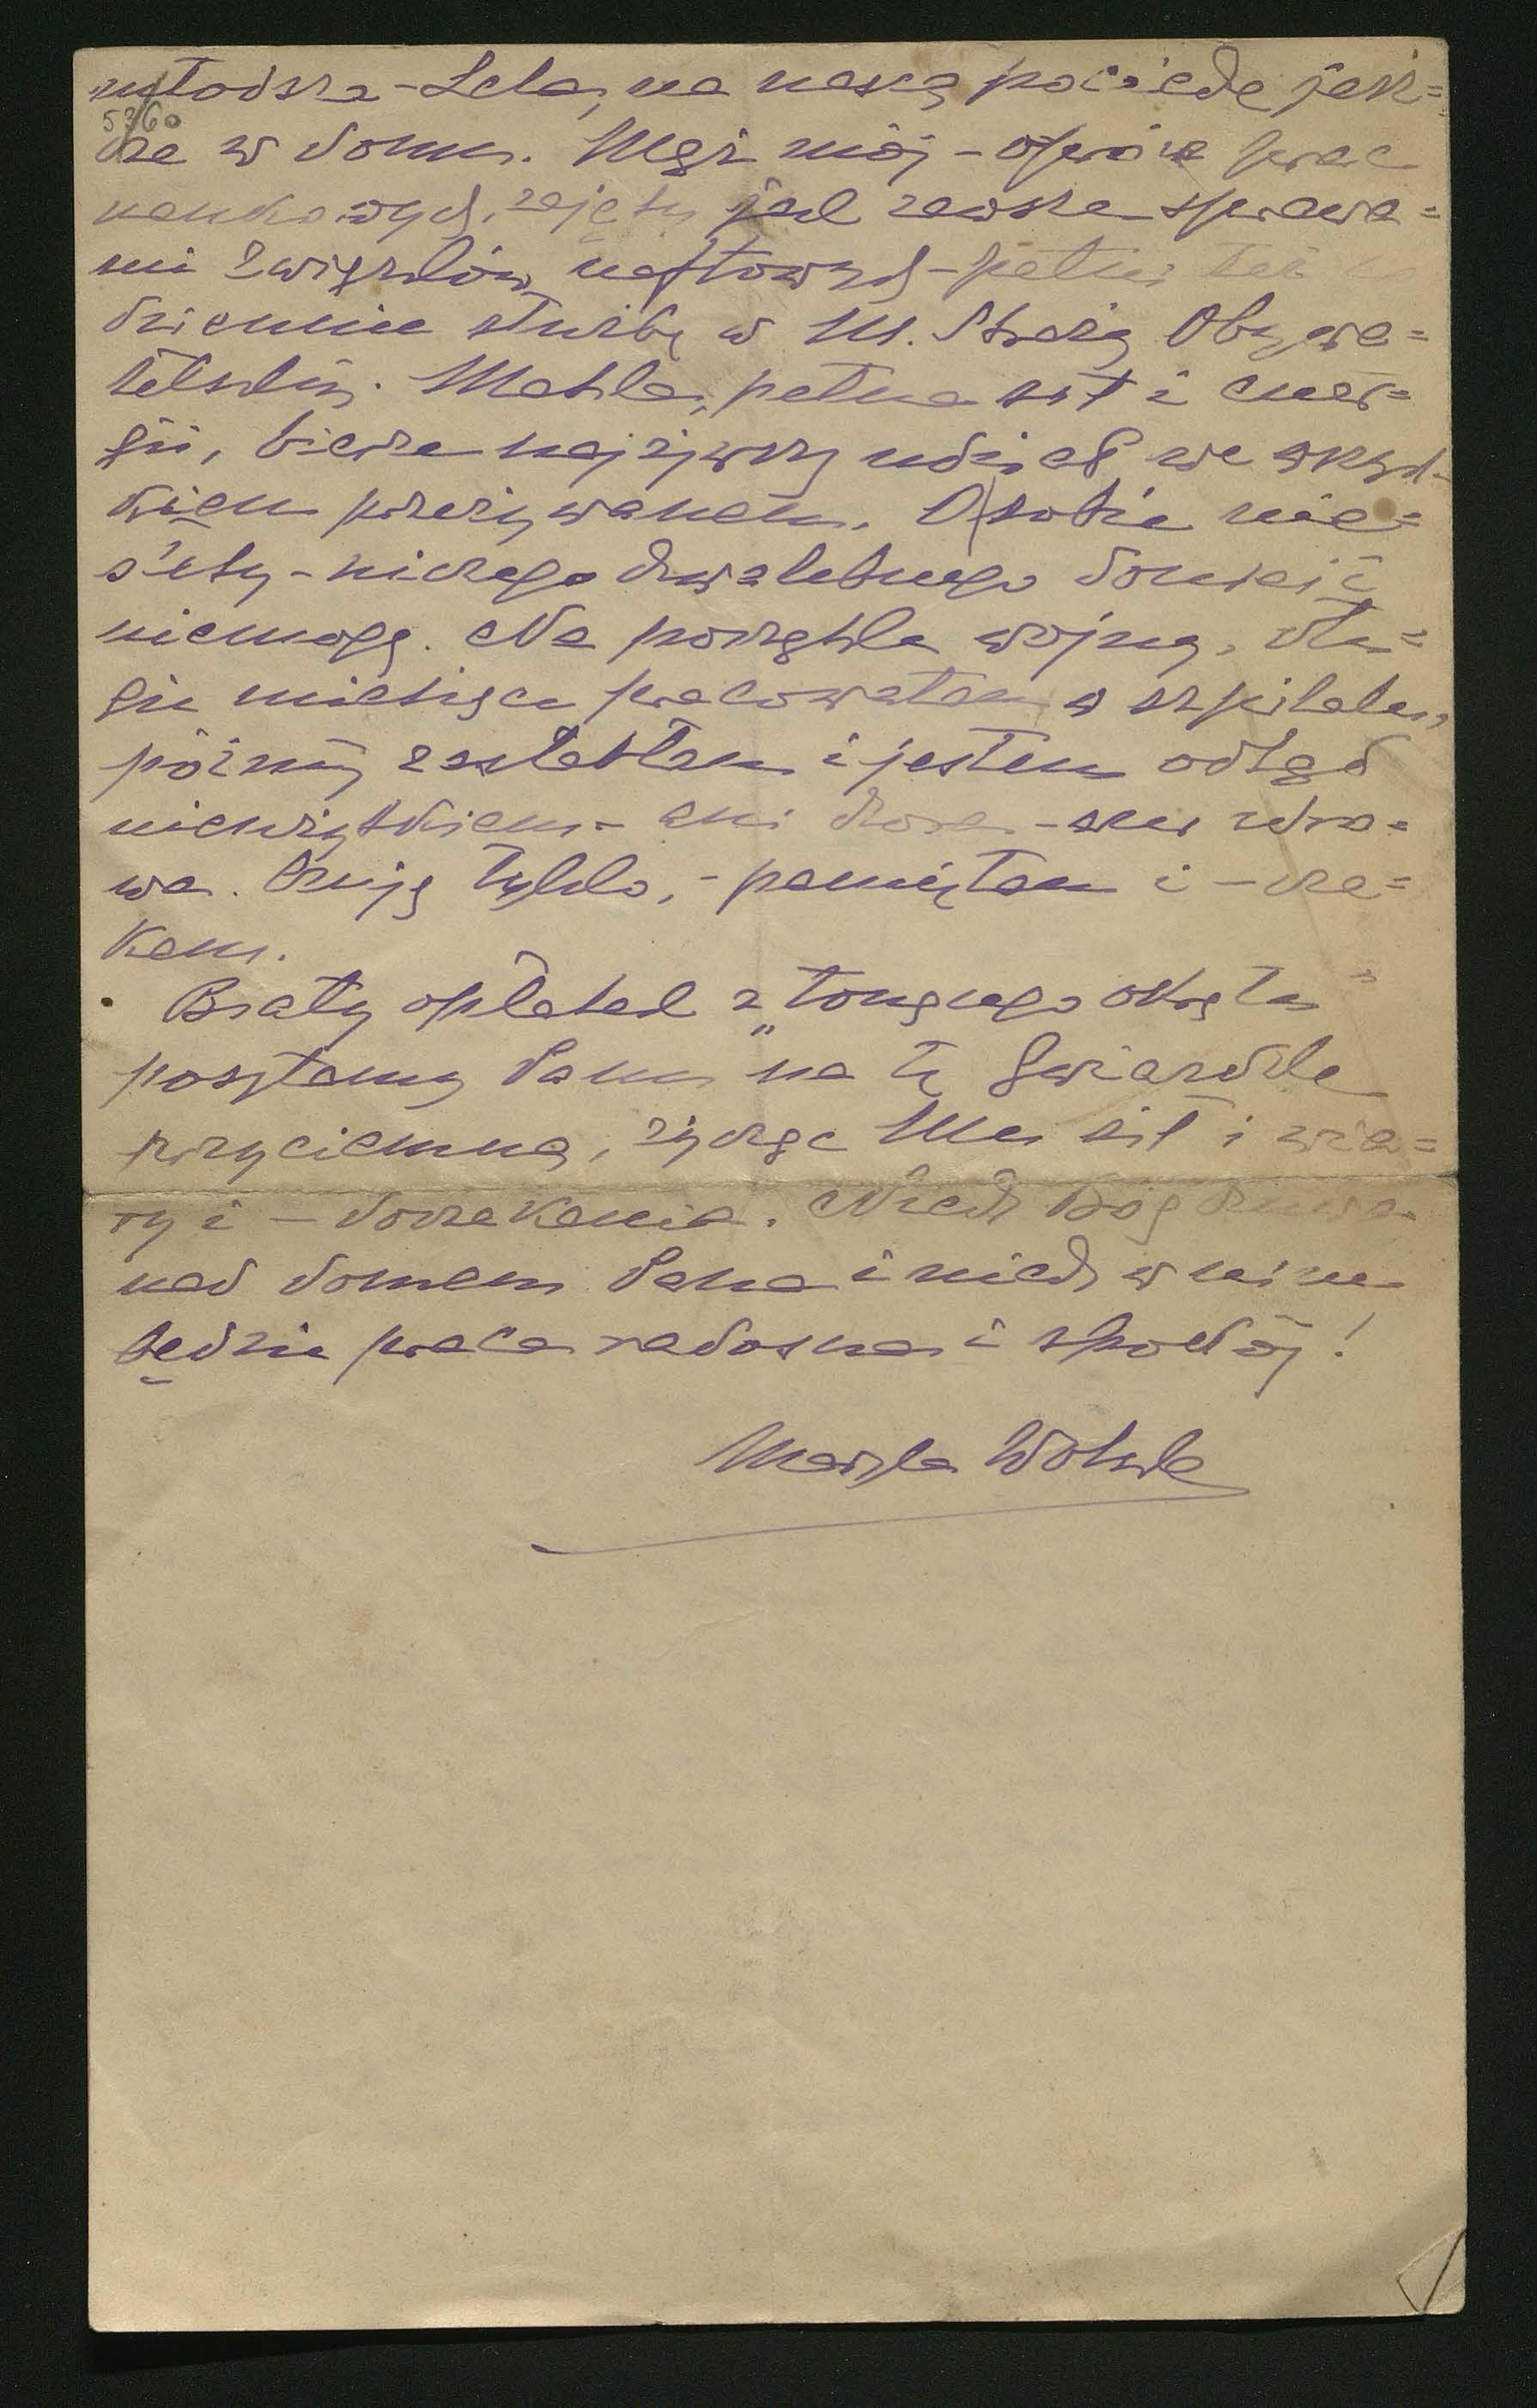 młodsza - Lela, na naszą pociechę jesz=
5360
cze w domu. Mąż mój - oprócz prac
naukowych, zajęty jak zawsze sprawa=
mi Związków naftowych - pełni też co
dziennie służbę w M. Straży Obywa=
telskiéj. Matka, pełna sił i ener=
gii, bierze najżywszy udział we wszyst-
kiem przeżywanem. O sobie nie=
stety - niczego chwalebnego donieść
niemogę. Na początku wojny, dłu=
gie miesiące pracowałam w szpitalu,
później zasłabłam i jestem odtąd
niewszystkiem - ani chora - ani zdro=
wa. Czuję tylko, - pamiętam i - cze=
kam.
Biały opłatek z „tonącego okrętu"
posyłamy Panu na tę Gwiazdkę
przyciemną, życząc Mu sił i wia=
ry i - doczekania. Niech Bóg czuwa
nad domem Pana i niech w nim
będzie praca radosna i spokój!
Maryla Wolska